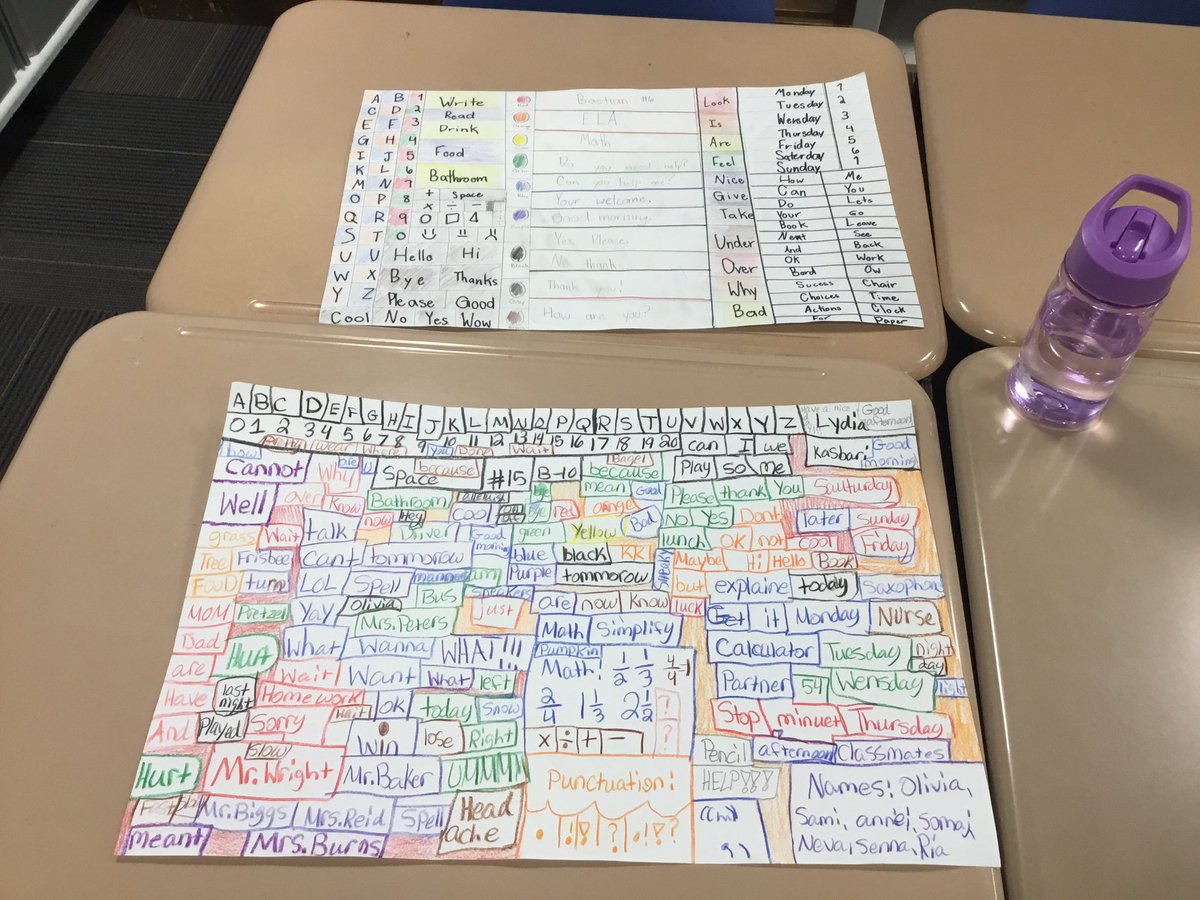 A B 1 Write
C D 2 Read
E F 3 Drink
G H 4
I J 5 Food
K L 6
M N 7 Bathroom
O P 8 + - Space
Q R 9 × ÷ =
S T 0
U V Hello Hi
W X Bye Thanks
Y Z Please Good
Cool No Yes Wow
Bastian #6
ELA
Math
Do you need help?
Can you help me?
Your welcome.
Good morning.
Yes Please.
No thank.
Thank you!
How are you?
Look
Is
Are
Feel
Nice
Give
Take
Under
Over
Why
Bad
Monday 1
Tuesday 2
Wensday 3
Thursday 4
Friday 5
Saterday 6
Sunday 7
How Me
Can You
Do Lets
Your Go
Book Leave
Next See
And Back
OK Work
Bord Ow
Sucess Chair
Choices Time
Actions Clock
For Paper
A B C D E F G H I J K L M N O P Q R S T U V W X Y Z Lydia Good afternoon
0 1 2 3 4 5 6 7 8 9 10 11 12 13 14 15 16 17 18 19 20 can I we Kasbari Good morning
Cannot Why Space because #15 B-10 Bagel because Play so me
Well over Know Bathroom cool mean Good Please thank You Sauturday
now Hey bye red orange No Yes Dont later Sunday
grass Wait talk Driver Good morning green Yellow Bad lunch OK not cool Friday
Tree Frisbee Cant tommorow blue black Maybe Hi Hello Book
FOOD LOL Spell am Purple tommorow but explaine today Saxophone
MOM Pretzel Yay Olivia Bus Speakers just are now know luck Get it Monday Nurse
Dad Hurt What Mrs.Peters Wanna WHAT!!! Math Simplify Calculator Tuesday night day
are Wait Want What left Pumpkin Math! 1/2 1/3 4/4=1 Partner 54 Wensday
Have last night Homework wait ok today Snow 2/4 1 1/3 2 1/2 ? Stop minuet Thursday
And Played Sorry Win lose Right × ÷ + - ? Pencil afternoon Classmates
Hurt slow Mr.Wright Mr.Baker UMMM Punctuation! HELP!!! Names! Olivia,
Mr.Biggs Mrs.Reid Spell Head ache . ! ? Sami, annej, Samaj
meant Mrs.Burns Neva, Senna, Ria